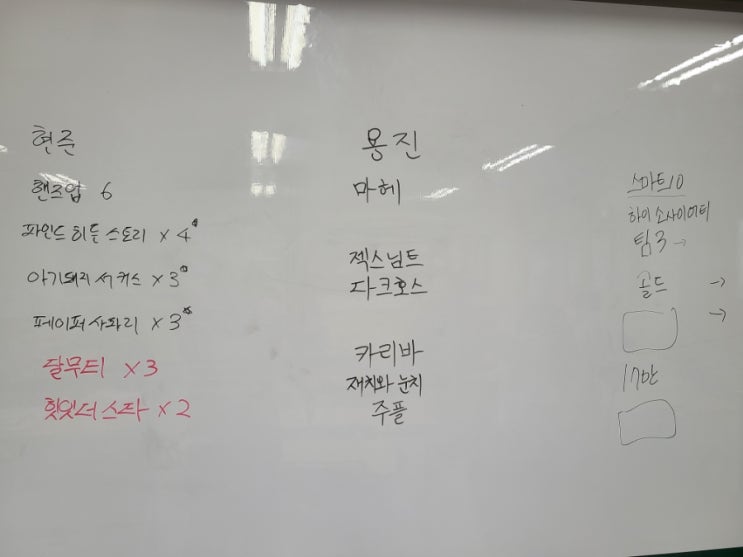 현준
핸즈업 6
파인드 히든 스토리 x 4
아기돼지 서커스 x 3
페이퍼 사파리 x 3
달무티 x 3
힛잇더 스타 x 2
용진
마헤
젝스님트
다크호스
카리바
재치와 눈치
주플
스마트10
하이 소사이어티
팀3 →
골드 →
→
17만